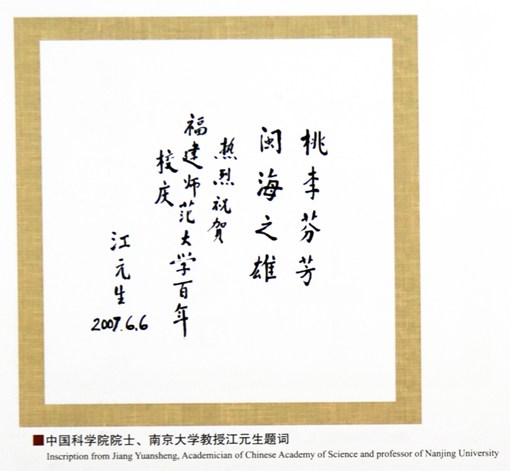 桃李芬芳
闽海之雄
热烈祝贺
福建师范大学百年
校庆
江元生
2007.6.6
■中国科学院院士、南京大学教授江元生题词
Inscription from Jiang Yuansheng, Academician of Chinese Academy of Science and professor of Nanjing University